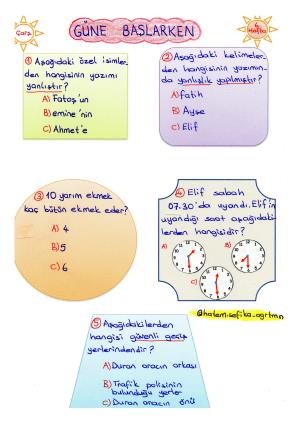 Çarş.
GÜNE BAŞLARKEN
Hafta
① Aşağıdaki özel isimler
den hangisinin yazımı
yanlıştır?
A) Fatoş'un
B) emine'nin
C) Ahmet'e
② Aşağıdaki kelimeler
den hangisinin yazımın
da yanlışlık yapılmıştır?
A) fatih
B) Ayşe
C) Elif
③ 10 yarım ekmek
kaç bütün ekmek eder?
A) 4
B) 5
C) 6
④ Elif sabah
07.30'da uyandı. Elif'in
uyandığı saat aşağıdaki
lerden hangisidir?
A)
B)
C)
@halemisefika_ogrtmn
⑤ Aşağıdakilerden
hangisi güvenli geçiş
yerlerindendir?
A) Duran aracın arkası
B) Trafik polisinin
bulunduğu yerler
C) Duran aracın önü